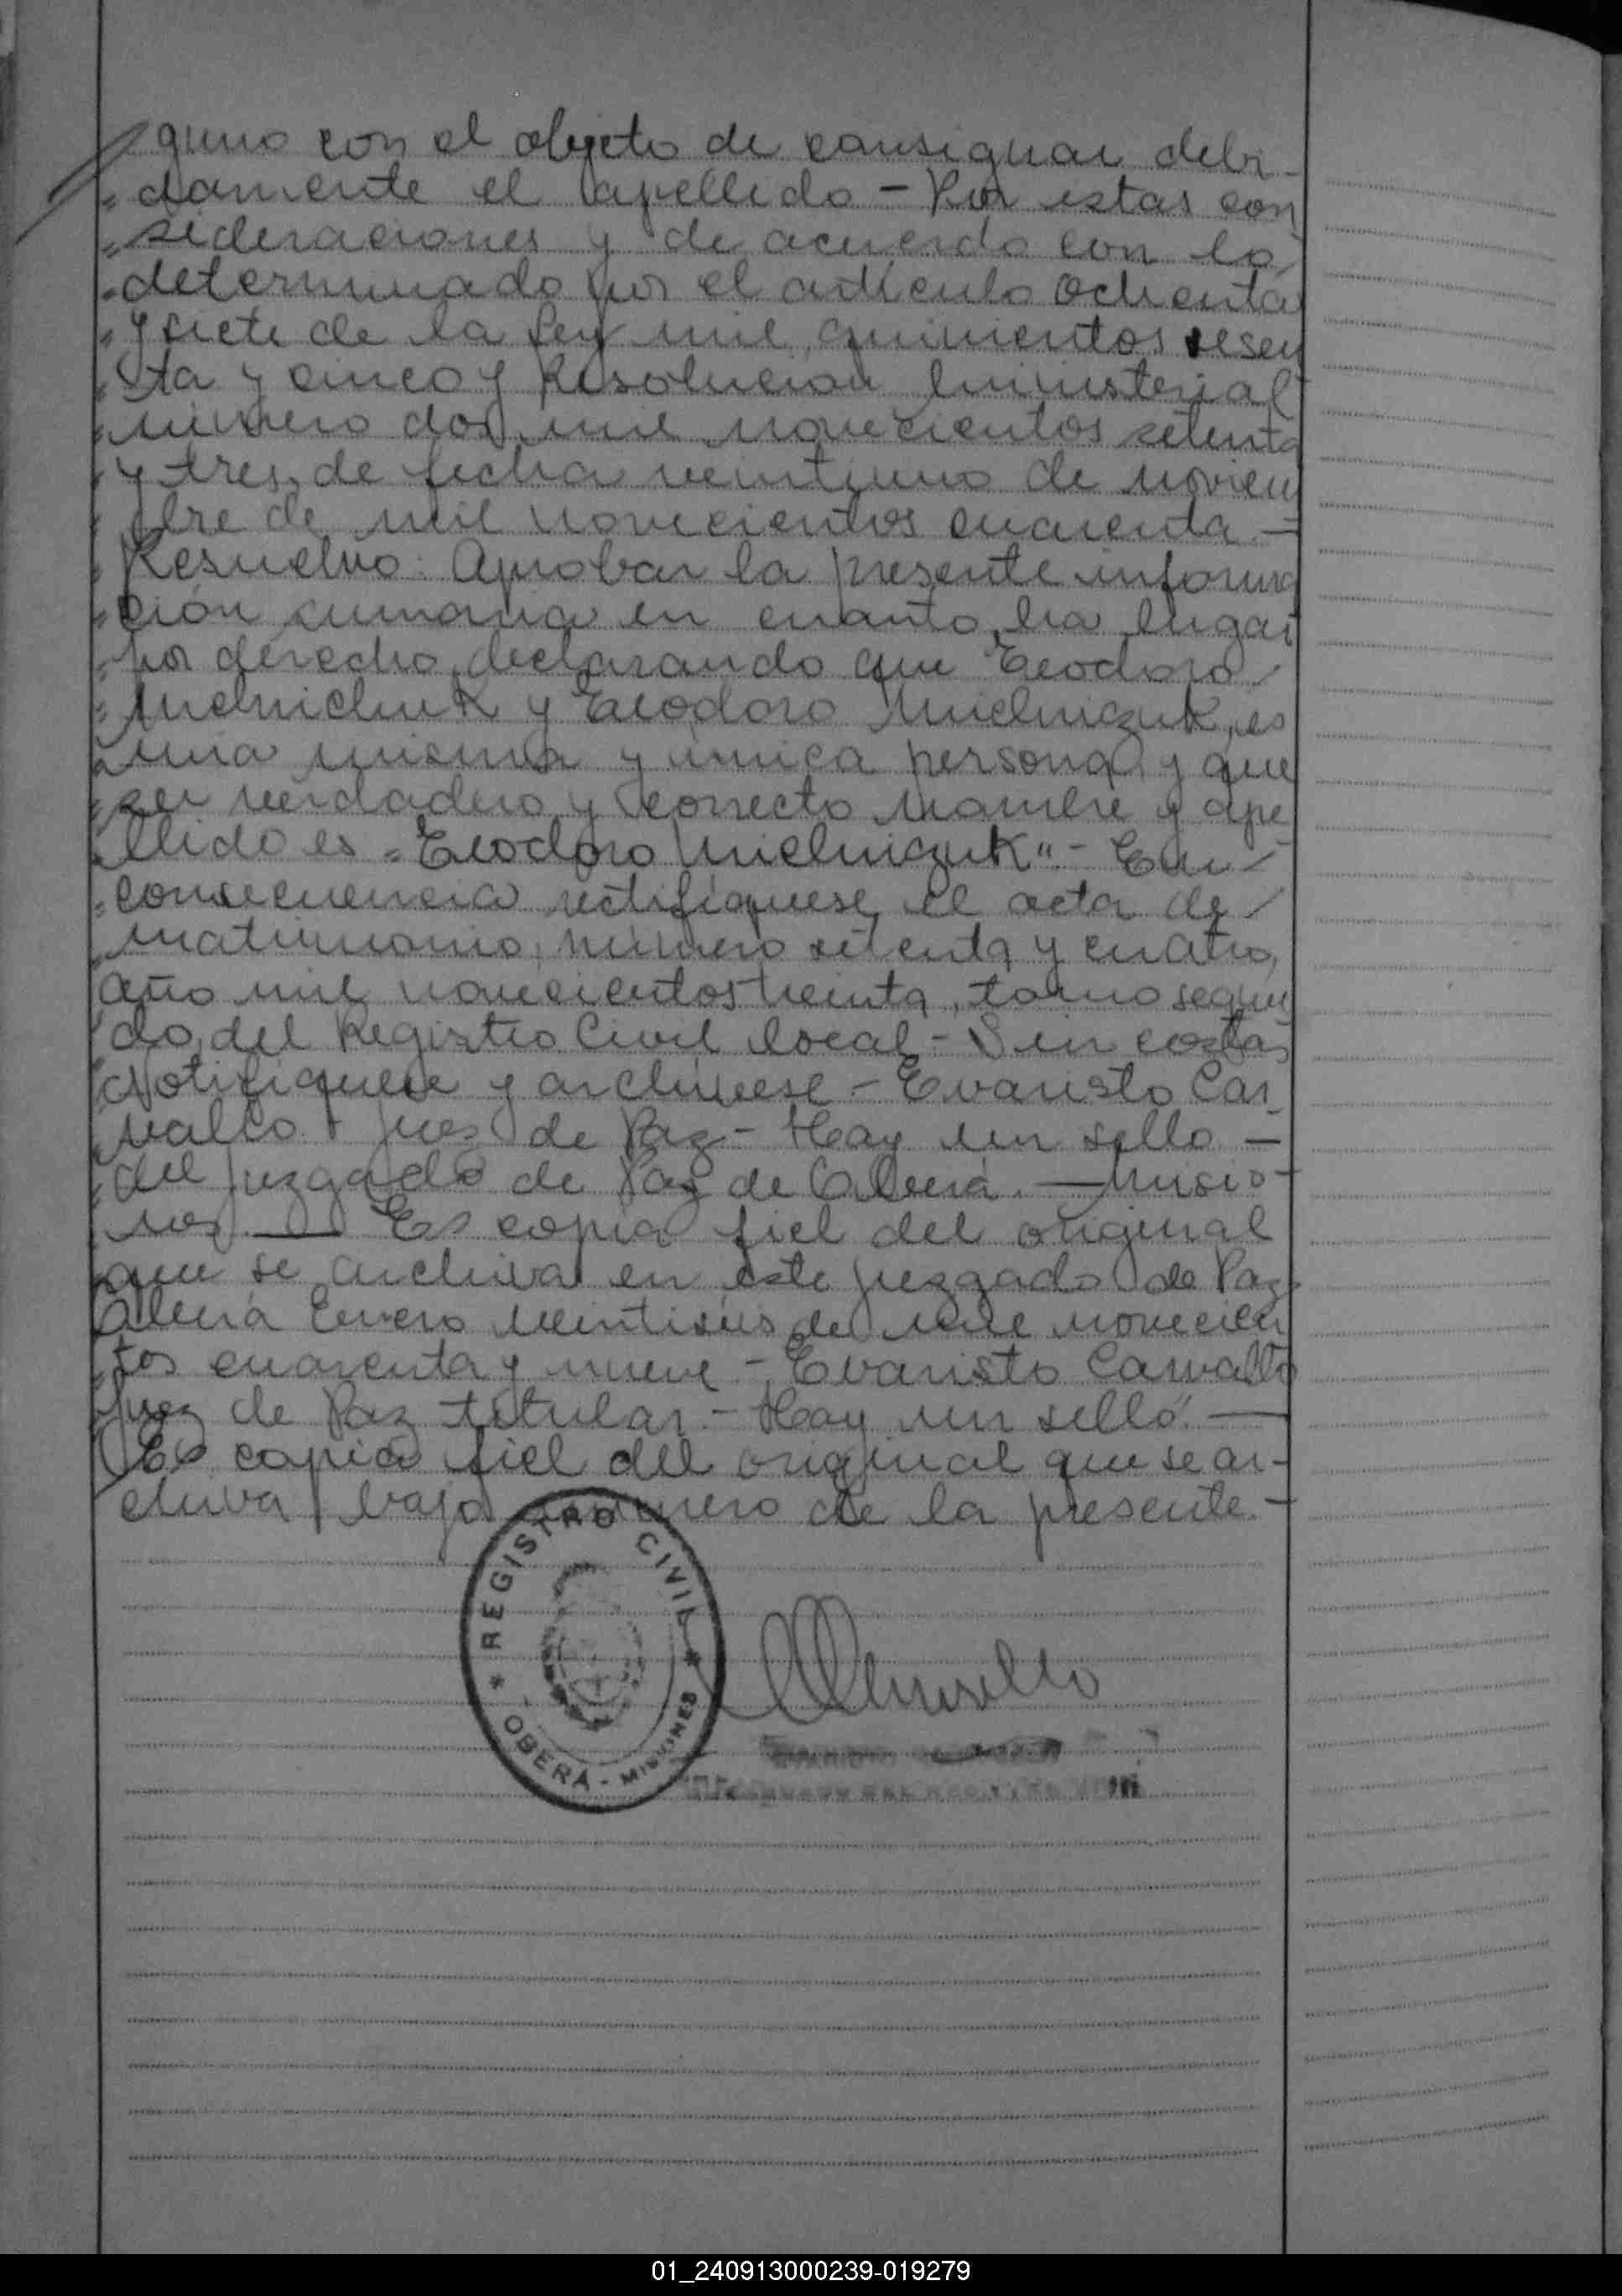 guno con el objeto de consignar debi-
damente el apellido - Por estas con
sideraciones y de acuerdo con lo
determinado por el artículo ochenta
y siete de la Ley mil quinientos sesen
ta y cinco y Resolucion Ministerial
número dos mil novecientos setenta
y tres, de fecha veintiuno de noviem
bre de mil novecientos cuarenta. -
Resuelvo: Aprobar la presente informa
ción sumaria en cuanto ha lugar
por derecho, declarando que Teodoro
Melnichuk y Teodoro Mielniczuk, es
una misma y única persona y que
su verdadero y correcto nombre y ape
llido es "Teodoro Mielniczuk" - En
consecuencia rectifíquese el acta de
matrimonio, número setenta y cuatro,
año mil novecientos treinta, tomo segun
do, del Registro Civil local - Sin costas
Notifiquese y archívese - Evaristo Car
vallo. Juez de Paz - Hay un sello -
del juzgado de Paz de Oberá. — Misio-
nes — Es copia fiel del original
que se archiva en este juzgado de Paz
Oberá Enero veintiséis de mil novecien
tos cuarenta y nueve - Evaristo Carvallo
Juez de Paz titular. - Hay un sello. —
Es copia fiel del original que se ar-
chiva bajo número de la presente. -
REGISTRO CIVIL
OBERÁ - MISIONES
01_240913000239-019279